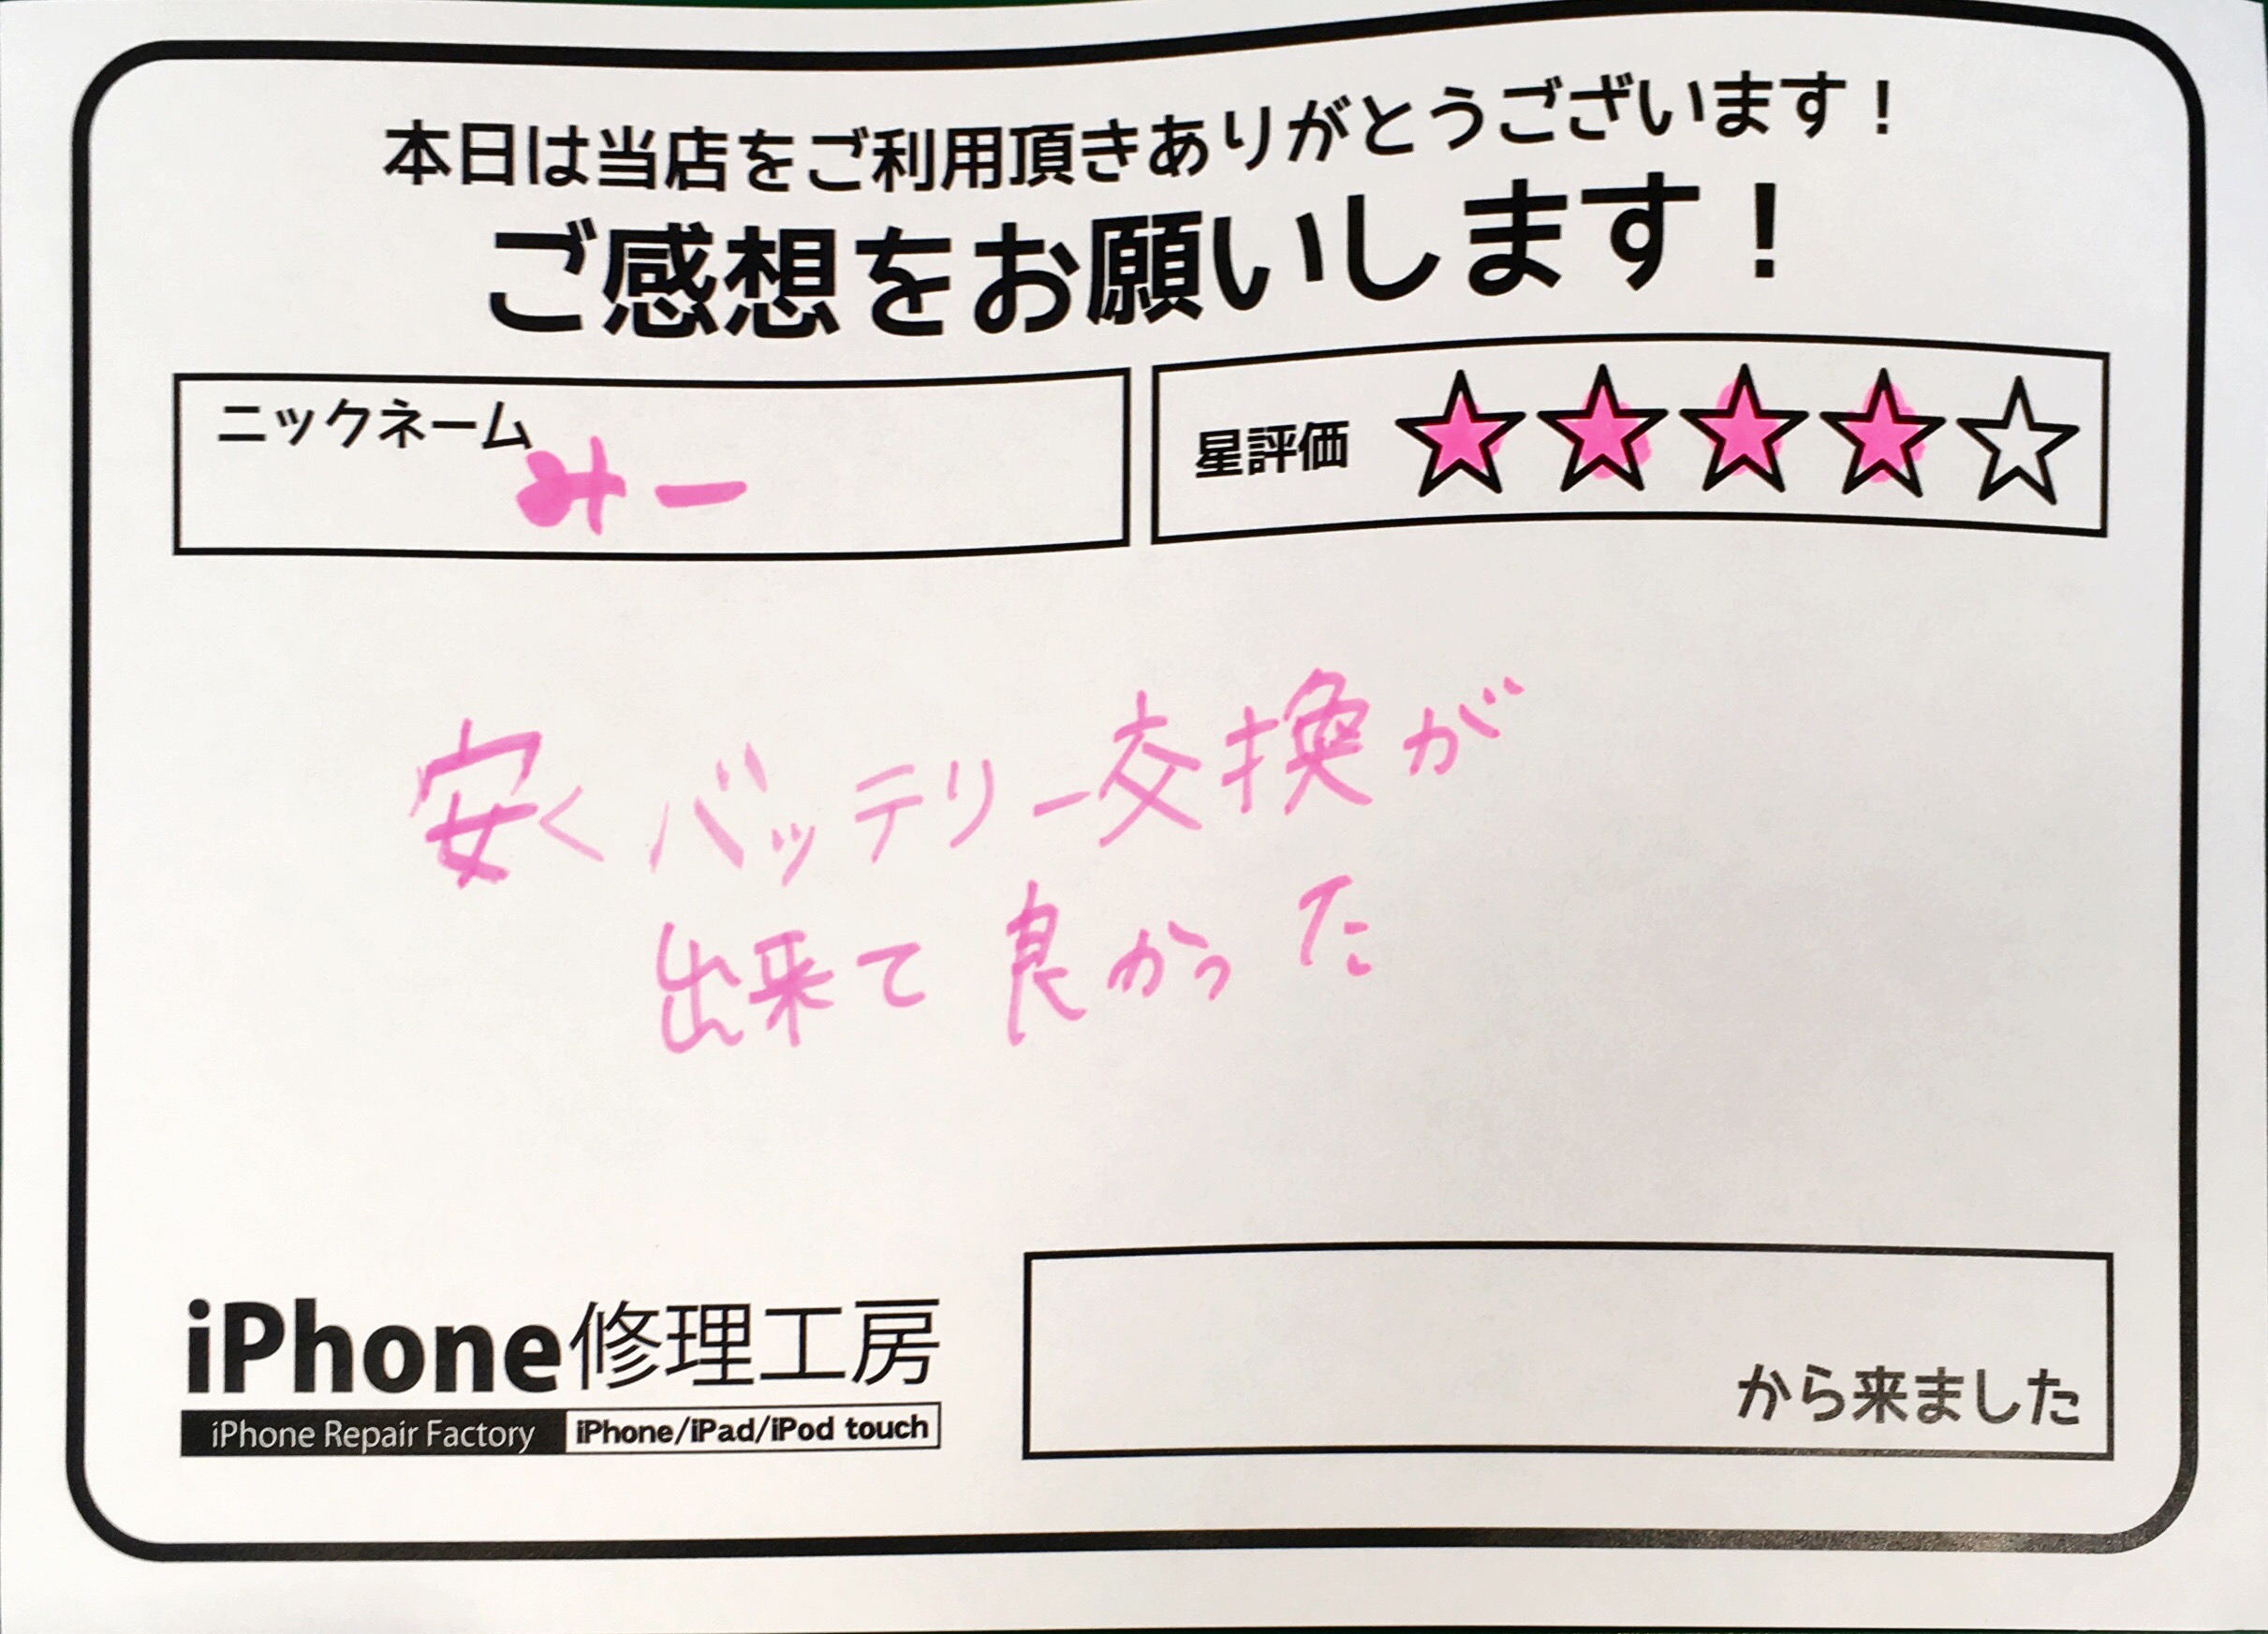 本日は当店をご利用頂きありがとうございます！
ご感想をお願いします！
ニックネーム
みー
星評価 ★★★★☆
安くバッテリー交換が
出来て良かった
iPhone修理工房
iPhone Repair Factory iPhone/iPad/iPod touch
から来ました